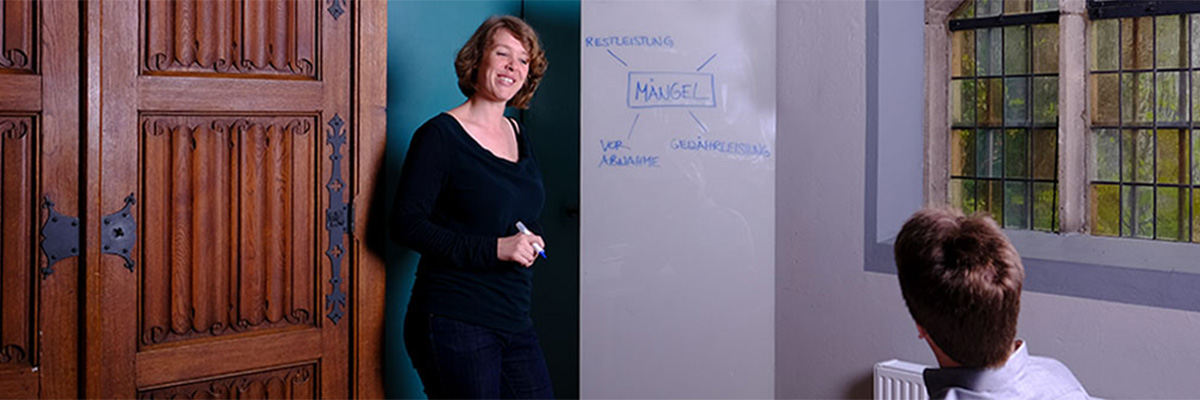 RESTLEISTUNG
MÄNGEL
VOR
ABNAHME
GEWÄHRLEISTUNG